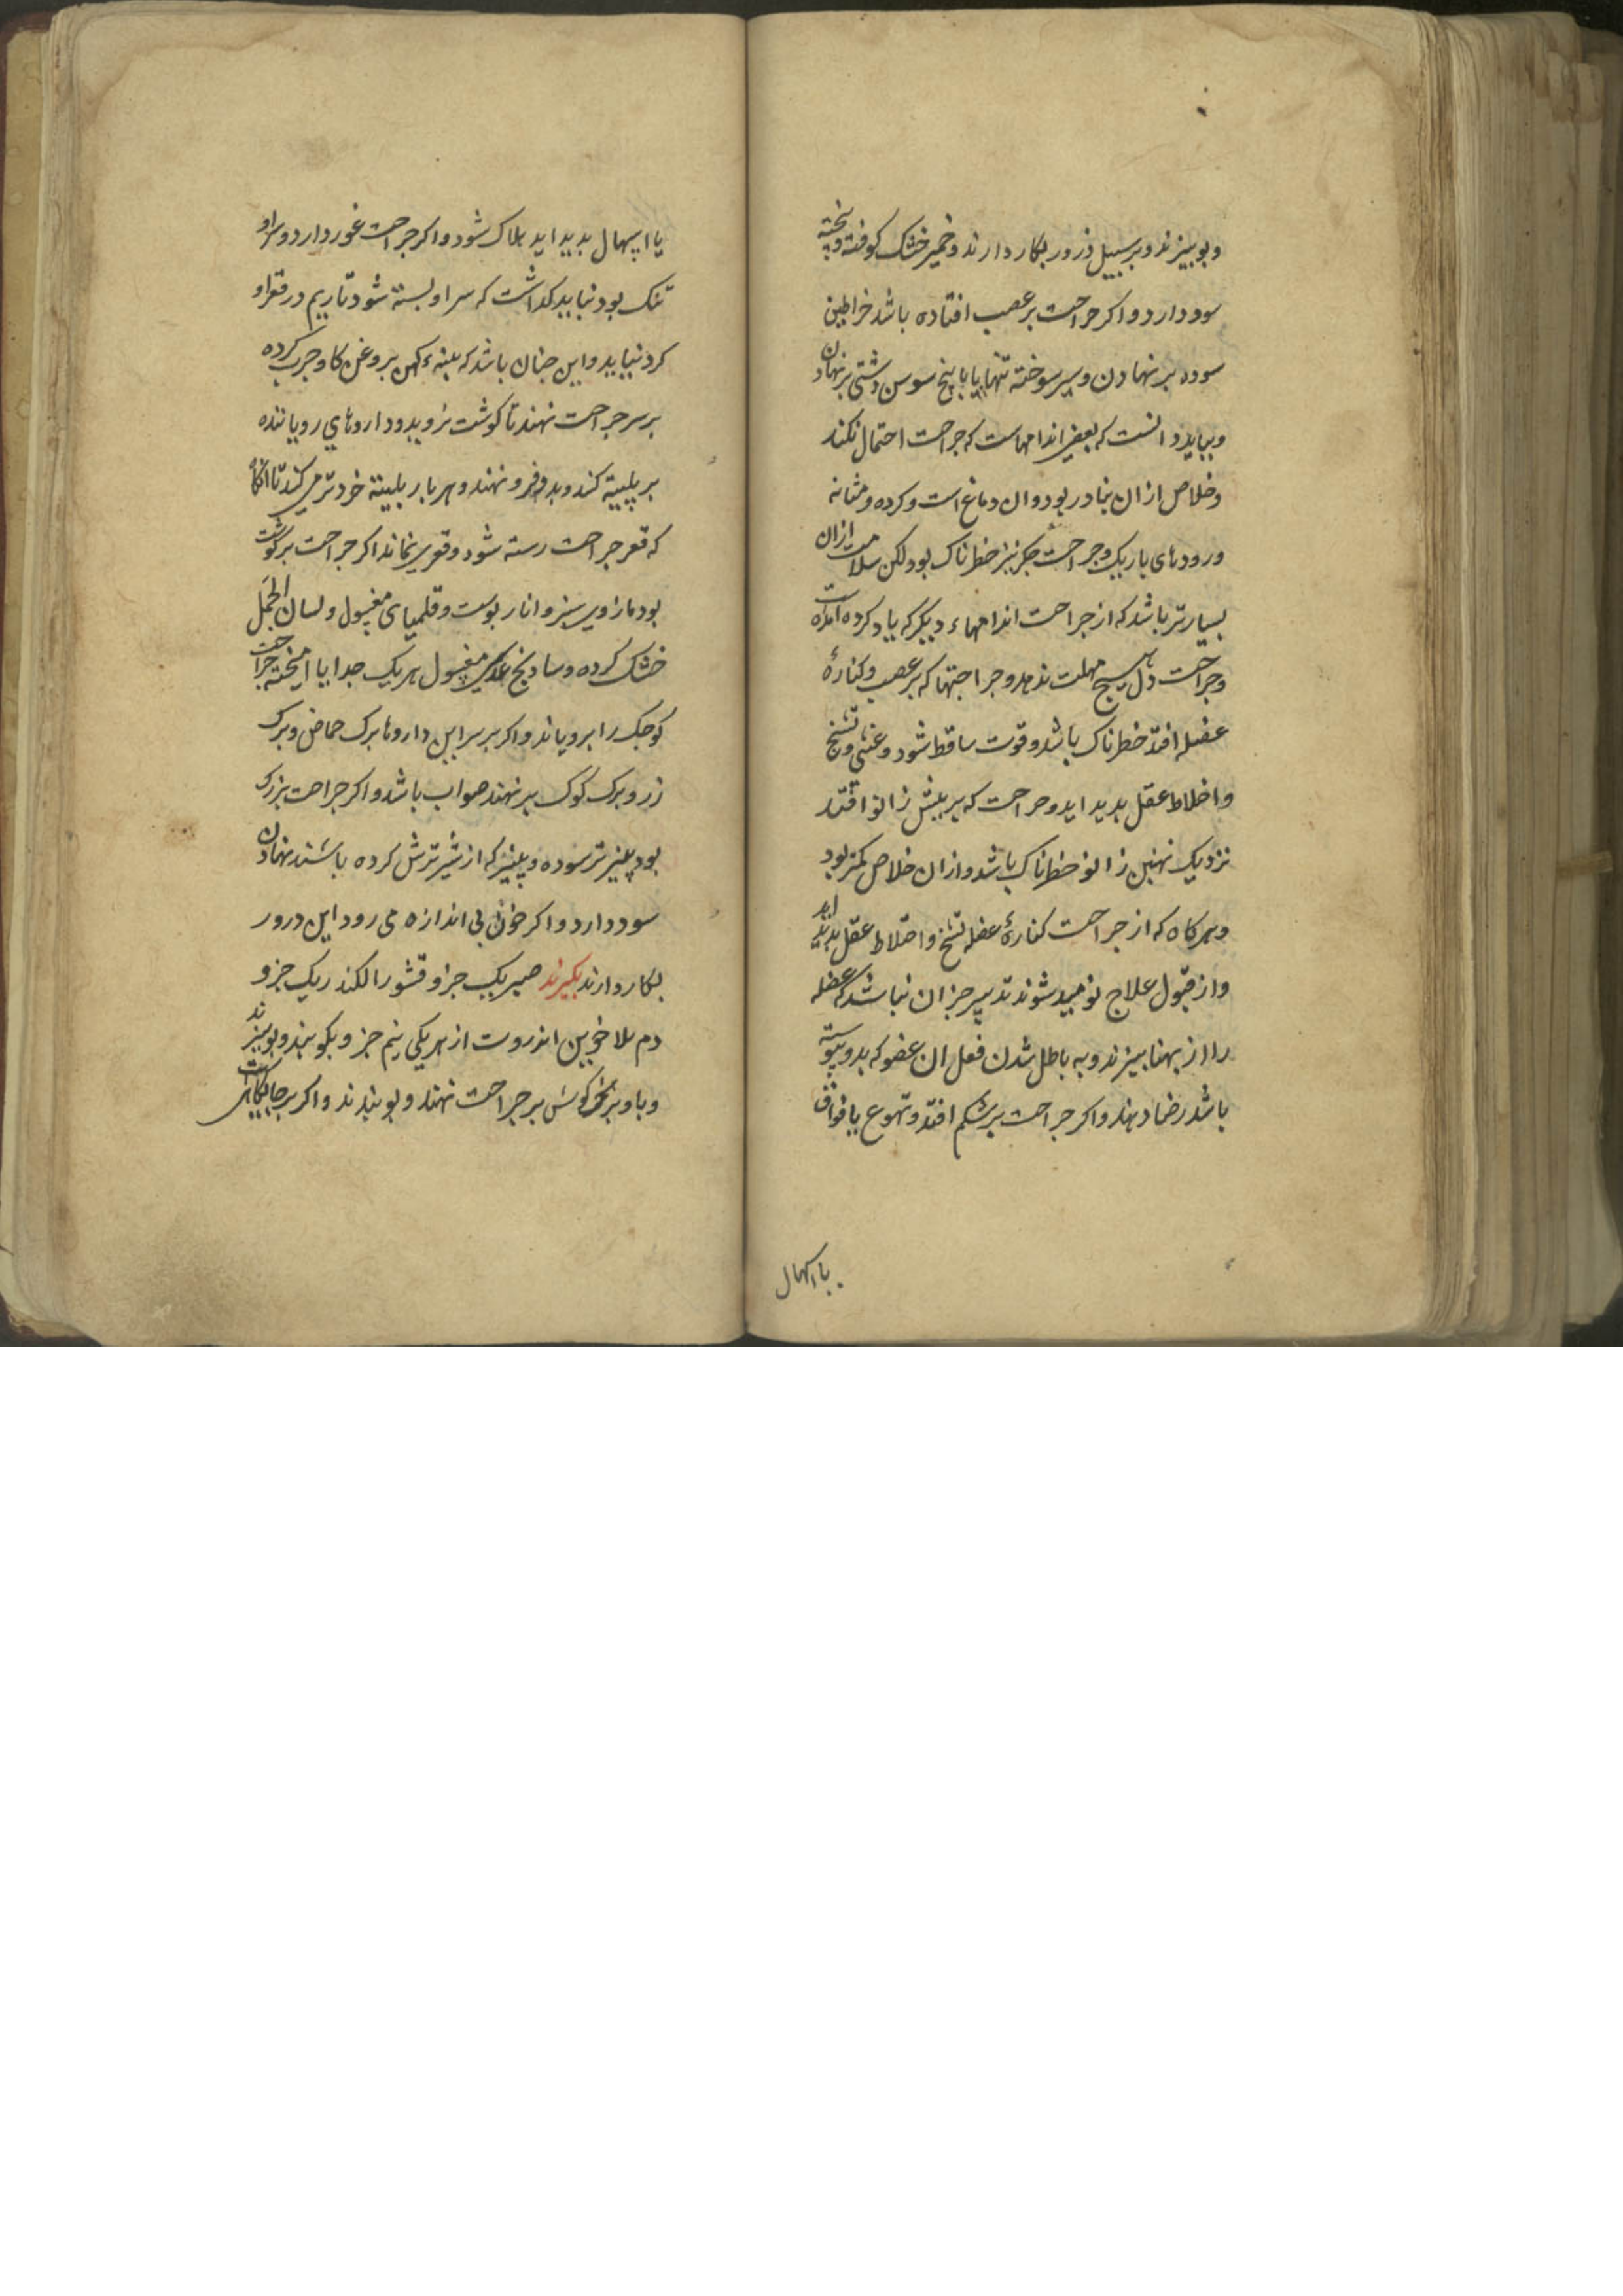 وبوبیزند و بر سبیل ذرور بکار دارند و خمیر خشک کوفته و پخته
سود دارد و اکر جراحت بر عصب افتاده باشد خراطین
سوده بر نهادن و سیر سوخته تنها یا با بیخ سوسن دشتی بر نهادن
و بباید دانست که بعضی اندامهاست که جراحت احتمال نکند
و خلاص ازان بنادر بود و ان دماغ است و کرده و مثانه
و رودهای باریک و جراحت جکر نیز خطرناک بود لکن سلامت ازان
بسیارتر باشد که از جراحت اندامهاء دیکر که یاد کرده امدست
و جراحت دل هیچ مهلت ندهد و جراحتها که بر عصب و کنارهٔ
عضله افتد خطرناک باشد و قوت ساقط شود و غشی و تشنج
و اختلاط عقل بدید اید و جراحت که بر پیش زانو افتد
نزدیک نهنبن زانو خطرناک باشد و ازان خلاص کمتر بود
و هرکاه که از جراحت کنارهٔ عضله تشنج و اختلاط عقل بدید اید
و از قبول علاج نومید شوند تدبیر جز ان نباشد که عضله
را از بهنا ببرند و به باطل شدن فعل ان عضو که بدو پیوسته
باشد رضا دهند و اکر جراحت بر شکم افتد و تهوع یا فواق
یا اسهال
یا اسهال بدید اید هلاک شود و اکر جراحت غور دارد و سر او
تنک بود نباید کذاشت که سر او بسته شود تا ریم در قعر او
کرد نیاید و این جنان باشد که پنبهء کهن بروغن کاو جرب کرده
بر سر جراحت نهند تا کوشت نروید و داروهای رویاننده
بر پلیته کند و بدو فرو نهند و هر بار پلیته خردتر می کند تا انکاه
که قعر جراحت رسته شود و قعری نماند اکر جراحت بر کوشت
بود مازوی سبز و انار پوست و قلمیای مغسول و لسان الحمل
خشک کرده و سادنج عدسی مغسول هر یک جدا یا امیخته جراحت
کوجک را برویاند و اکر بر سر این داروها برک حماض و برک
رز و برک کوک بر نهند صواب باشد و اکر جراحت بزرک
بود پنیر تر سوده و پنیر که از شیر ترش کرده باشند نهادن
سود دارد و اکر خون بی اندازه می رود این درور
بکار دارند بکیرند صبر یک جزو قشور الکندر یک جزو
دم الاخوین انزروت از هر یکی نیم جزو بکوبند و ببوبیزند
و با وبر خرکوش بر جراحت نهند و بوبندند و اکر بر جایکاهی است